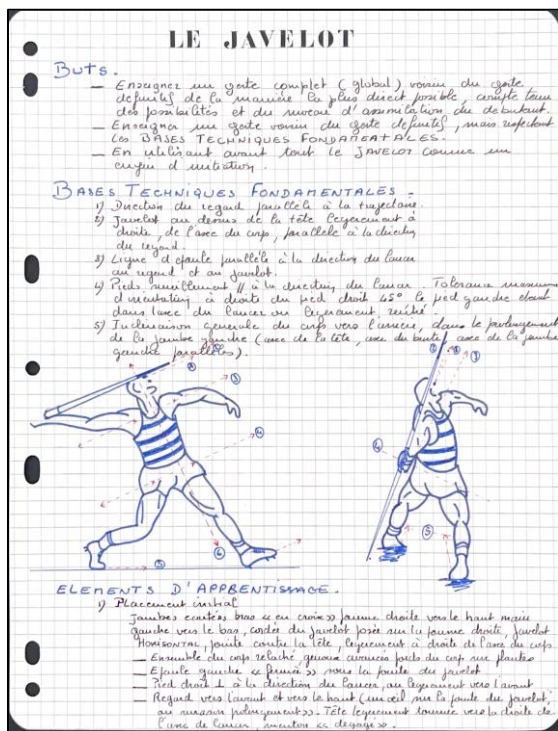 LE JAVELOT
BUTS.
— Enseigner un geste complet (global) voisin du geste
definitif de la manière la plus direct possible, compte tenu
des possibilités et du niveau d'assimilation du debutant.
— Enseigner un geste voisin du geste definitif, mais respectant
les BASES TECHNIQUES FONDAMENTALES.
— En utilisant avant tout le JAVELOT comme un
engin d'initiation.
BASES TECHNIQUES FONDAMENTALES -
1) Direction du regard parallèle à la trajectoire.
2) Javelot au dessus de la tête legerement à
droite, de l'axe du corps, parallèle à la direction
du regard.
3) Ligne d'epaule parallèle à la direction du lancer
au regard et au javelot.
4) Pieds sensiblement // à la direction du lancer. Tolerance maximum
d'orientation à droite du pied droit 45° le pied gauche etant
dans l'axe du lancer ou legerement rentré
5) Inclinaison generale du corps vers l'arriere, dans le prolongement
de la jambe gauche (axe de la tête, axe du buste, axe de la jambe
gauche parallèles).
ELEMENTS D'APPRENTISSAGE.
1) Placement initial
Jambes ecartées bras « en croix » paume droite vers le haut main
gauche vers le bas, cordée du javelot posée sur la paume droite, javelot
HORISONTAL, pointe contre la tête, legerement à droite de l'axe du corps
— Ensemble du corps relaché, genoux avancés poids du corps sur plantes
— Epaule gauche « fermée » sous la pointe du javelot
— Pied droit ⊥ à la direction du lancer, ou legerement vers l'avant
— Regard vers l'avant et vers le haut (un œil sur la pointe du javelot,
ou prolongement ». Tête legerement tournée vers la droite de
l'axe de lancer, menton « degagé ».